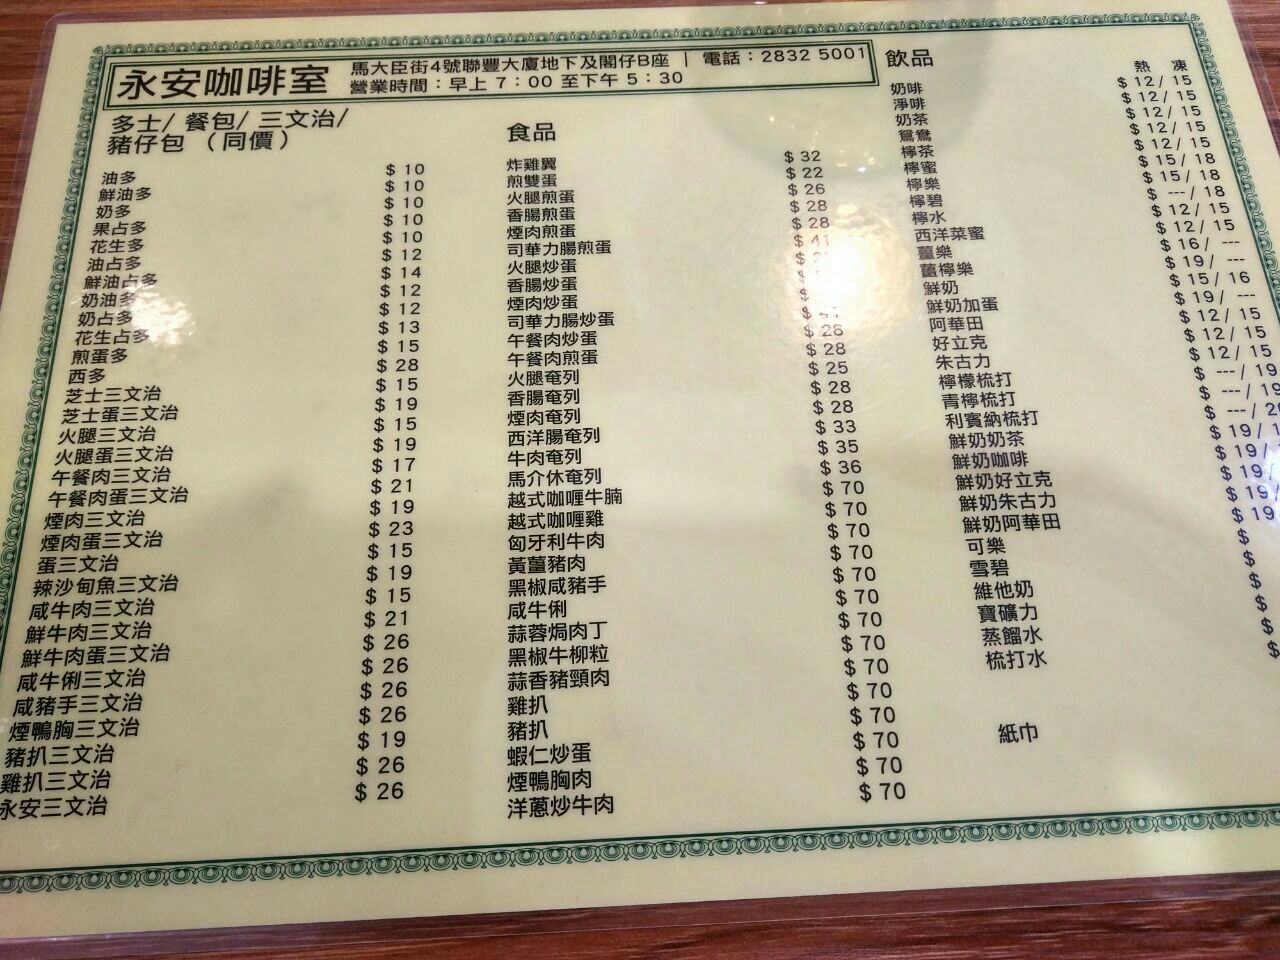 永安咖啡室
馬大臣街4號聯豐大廈地下及閣仔B座 | 電話：2832 5001
營業時間：早上 7：00 至下午 5：30
多士/ 餐包/ 三文治/
豬仔包 （同價）
油多 $ 10
鮮油多 $ 10
奶多 $ 10
果占多 $ 10
花生多 $ 10
油占多 $ 12
鮮油占多 $ 14
奶油多 $ 12
奶占多 $ 12
花生占多 $ 13
煎蛋多 $ 15
西多 $ 28
芝士三文治 $ 15
芝士蛋三文治 $ 19
火腿三文治 $ 15
火腿蛋三文治 $ 19
午餐肉三文治 $ 17
午餐肉蛋三文治 $ 21
煙肉三文治 $ 19
煙肉蛋三文治 $ 23
蛋三文治 $ 15
辣沙甸魚三文治 $ 19
咸牛肉三文治 $ 15
鮮牛肉三文治 $ 21
鮮牛肉蛋三文治 $ 26
咸牛脷三文治 $ 26
咸豬手三文治 $ 26
煙鴨胸三文治 $ 26
豬扒三文治 $ 19
雞扒三文治 $ 26
永安三文治 $ 26
食品
炸雞翼 $ 32
煎雙蛋 $ 22
火腿煎蛋 $ 26
香腸煎蛋 $ 28
煙肉煎蛋 $ 28
司華力腸煎蛋 $ 41
火腿炒蛋 $
香腸炒蛋 $
煙肉炒蛋 $
司華力腸炒蛋 $
午餐肉炒蛋 $ 28
午餐肉煎蛋 $ 28
火腿奄列 $ 25
香腸奄列 $ 28
煙肉奄列 $ 28
西洋腸奄列 $ 33
牛肉奄列 $ 35
馬介休奄列 $ 36
越式咖喱牛腩 $ 70
越式咖喱雞 $ 70
匈牙利牛肉 $ 70
黃薑豬肉 $ 70
黑椒咸豬手 $ 70
咸牛脷 $ 70
蒜蓉焗肉丁 $ 70
黑椒牛柳粒 $ 70
蒜香豬頸肉 $ 70
雞扒 $ 70
豬扒 $ 70
蝦仁炒蛋 $ 70
煙鴨胸肉 $ 70
洋蔥炒牛肉 $ 70
飲品 熱 凍
奶啡 $ 12/ 15
淨啡 $ 12/ 15
奶茶 $ 12/ 15
鴛鴦 $ 12/ 15
檸茶 $ 12/ 15
檸蜜 $ 15/ 18
檸樂 $ 15/ 18
檸碧 $ ---/ 18
檸水 $ 12/ 15
西洋菜蜜 $ 12/ 15
薑樂 $ 16/ ---
薑檸樂 $ 19/ ---
鮮奶 $ 15/ 16
鮮奶加蛋 $ 19/ ---
阿華田 $ 12/ 15
好立克 $ 12/ 15
朱古力 $ 12/ 15
檸檬梳打 $ ---/ 19
青檸梳打 $ ---/ 19
利賓納梳打 $ ---/ 20
鮮奶奶茶 $ 19/
鮮奶咖啡 $ 19/
鮮奶好立克 $ 19/
鮮奶朱古力 $ 19/
鮮奶阿華田 $ 19
可樂 $
雪碧 $
維他奶 $
寶礦力 $
蒸餾水 $
梳打水 $
紙巾